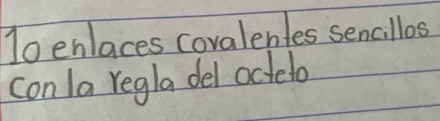 10 enlaces covalentes sencillos
con la regla del octeto